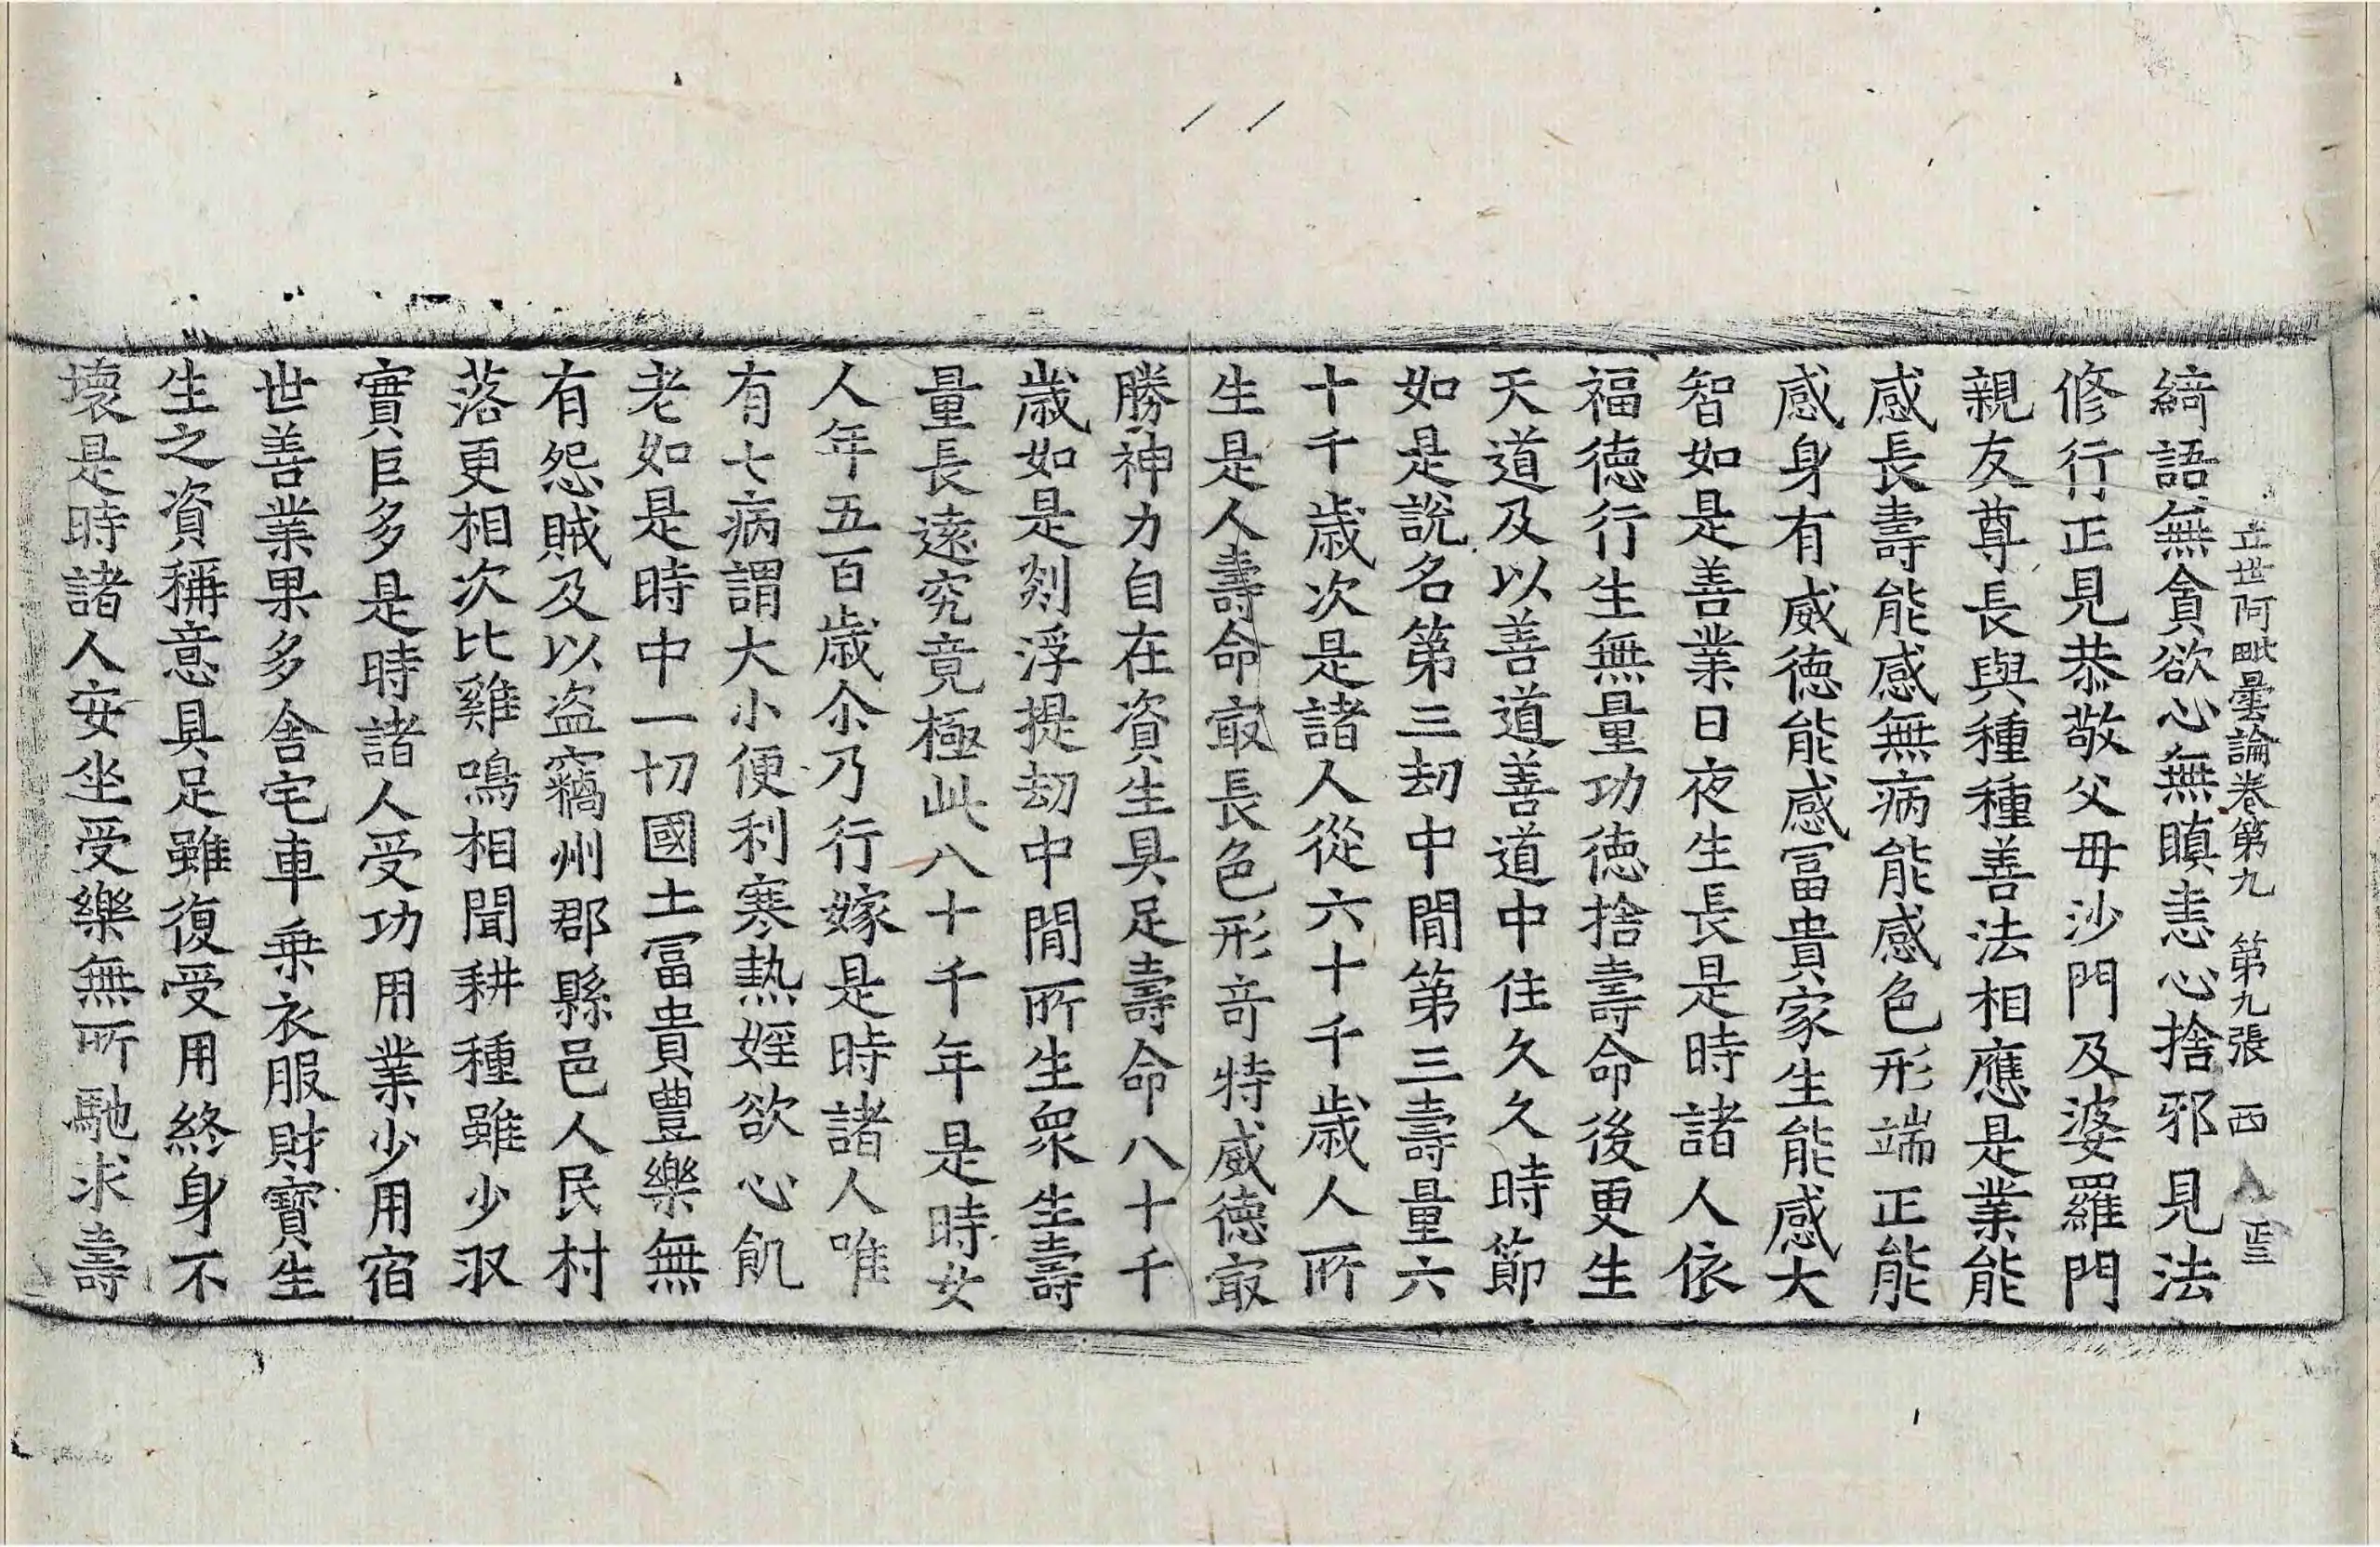 立世阿毗曇論卷第九　第九張　西
綺語無貪欲心無瞋恚心捨邪見法
修行正見恭敬父母沙門及婆羅門
親友尊長與種種善法相應是業能
感長壽能感無病能感色形端正能
感身有威德能感冨貴家生能感大
智如是善業日夜生長是時諸人依
福德行生無量功德捨壽命後更生
天道及以善道善道中住久久時節
如是說名第三劫中閒第三壽量六
十千歲次是諸人從六十千歲人所
生是人壽命㝡長色形奇特威德㝡
勝神力自在資生具足壽命八十千
歲如是剡浮提劫中閒所生衆生壽
量長遠究竟極此八十千年是時女
人年五百歲尒乃行嫁是時諸人唯
有七病謂大小便利寒熱婬欲心飢
老如是時中一切國土冨貴豐樂無
有怨賊及以盜竊州郡縣邑人民村
落更相次比雞鳴相聞耕種雖少𭣣
實巨多是時諸人受功用業少用宿
世善業果多舍宅車乘衣服財寶生
生之資稱意具足雖復受用終身不
壞是時諸人安坐受樂無所馳求壽